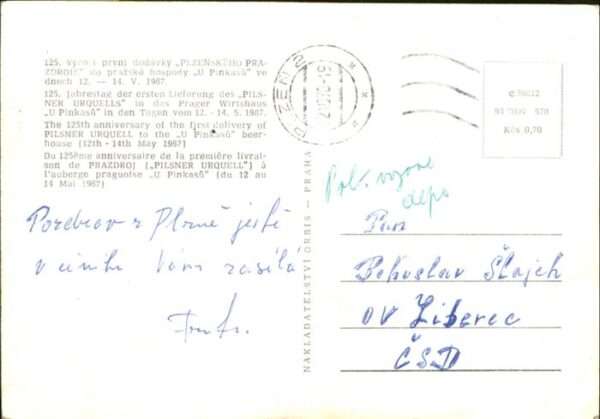 125. výročí první dodávky „PLZEŇSKÉHO PRA-
ZDROJE" do pražské hospody „U Pinkasů" ve
dnech 12. — 14. V. 1967.
125. Jahrestag der ersten Lieferung des „PILS-
NER URQUELLS" in das Prager Wirtshaus
„U Pinkasů" in den Tagen vom 12. - 14. 5. 1967.
The 125th anniversary of the first delivery of
PILSNER URQUELL to the „U Pinkasů" beer-
house (12th - 14th May 1967)
Du 125ème anniversaire de la première livrai-
son de PRAZDROJ („PILSNER URQUELL") à
l'auberge praguoise „U Pinkasů" (du 12 au
14 Mai 1967)
Pozdrav z Plzně ještě
Vám zasílá
NAKLADATELSTVÍ ORBIS — PRAHA
PLZEŇ 2
Kčs 0,70
Pan
Bohuslav
OV Liberec
ČSD